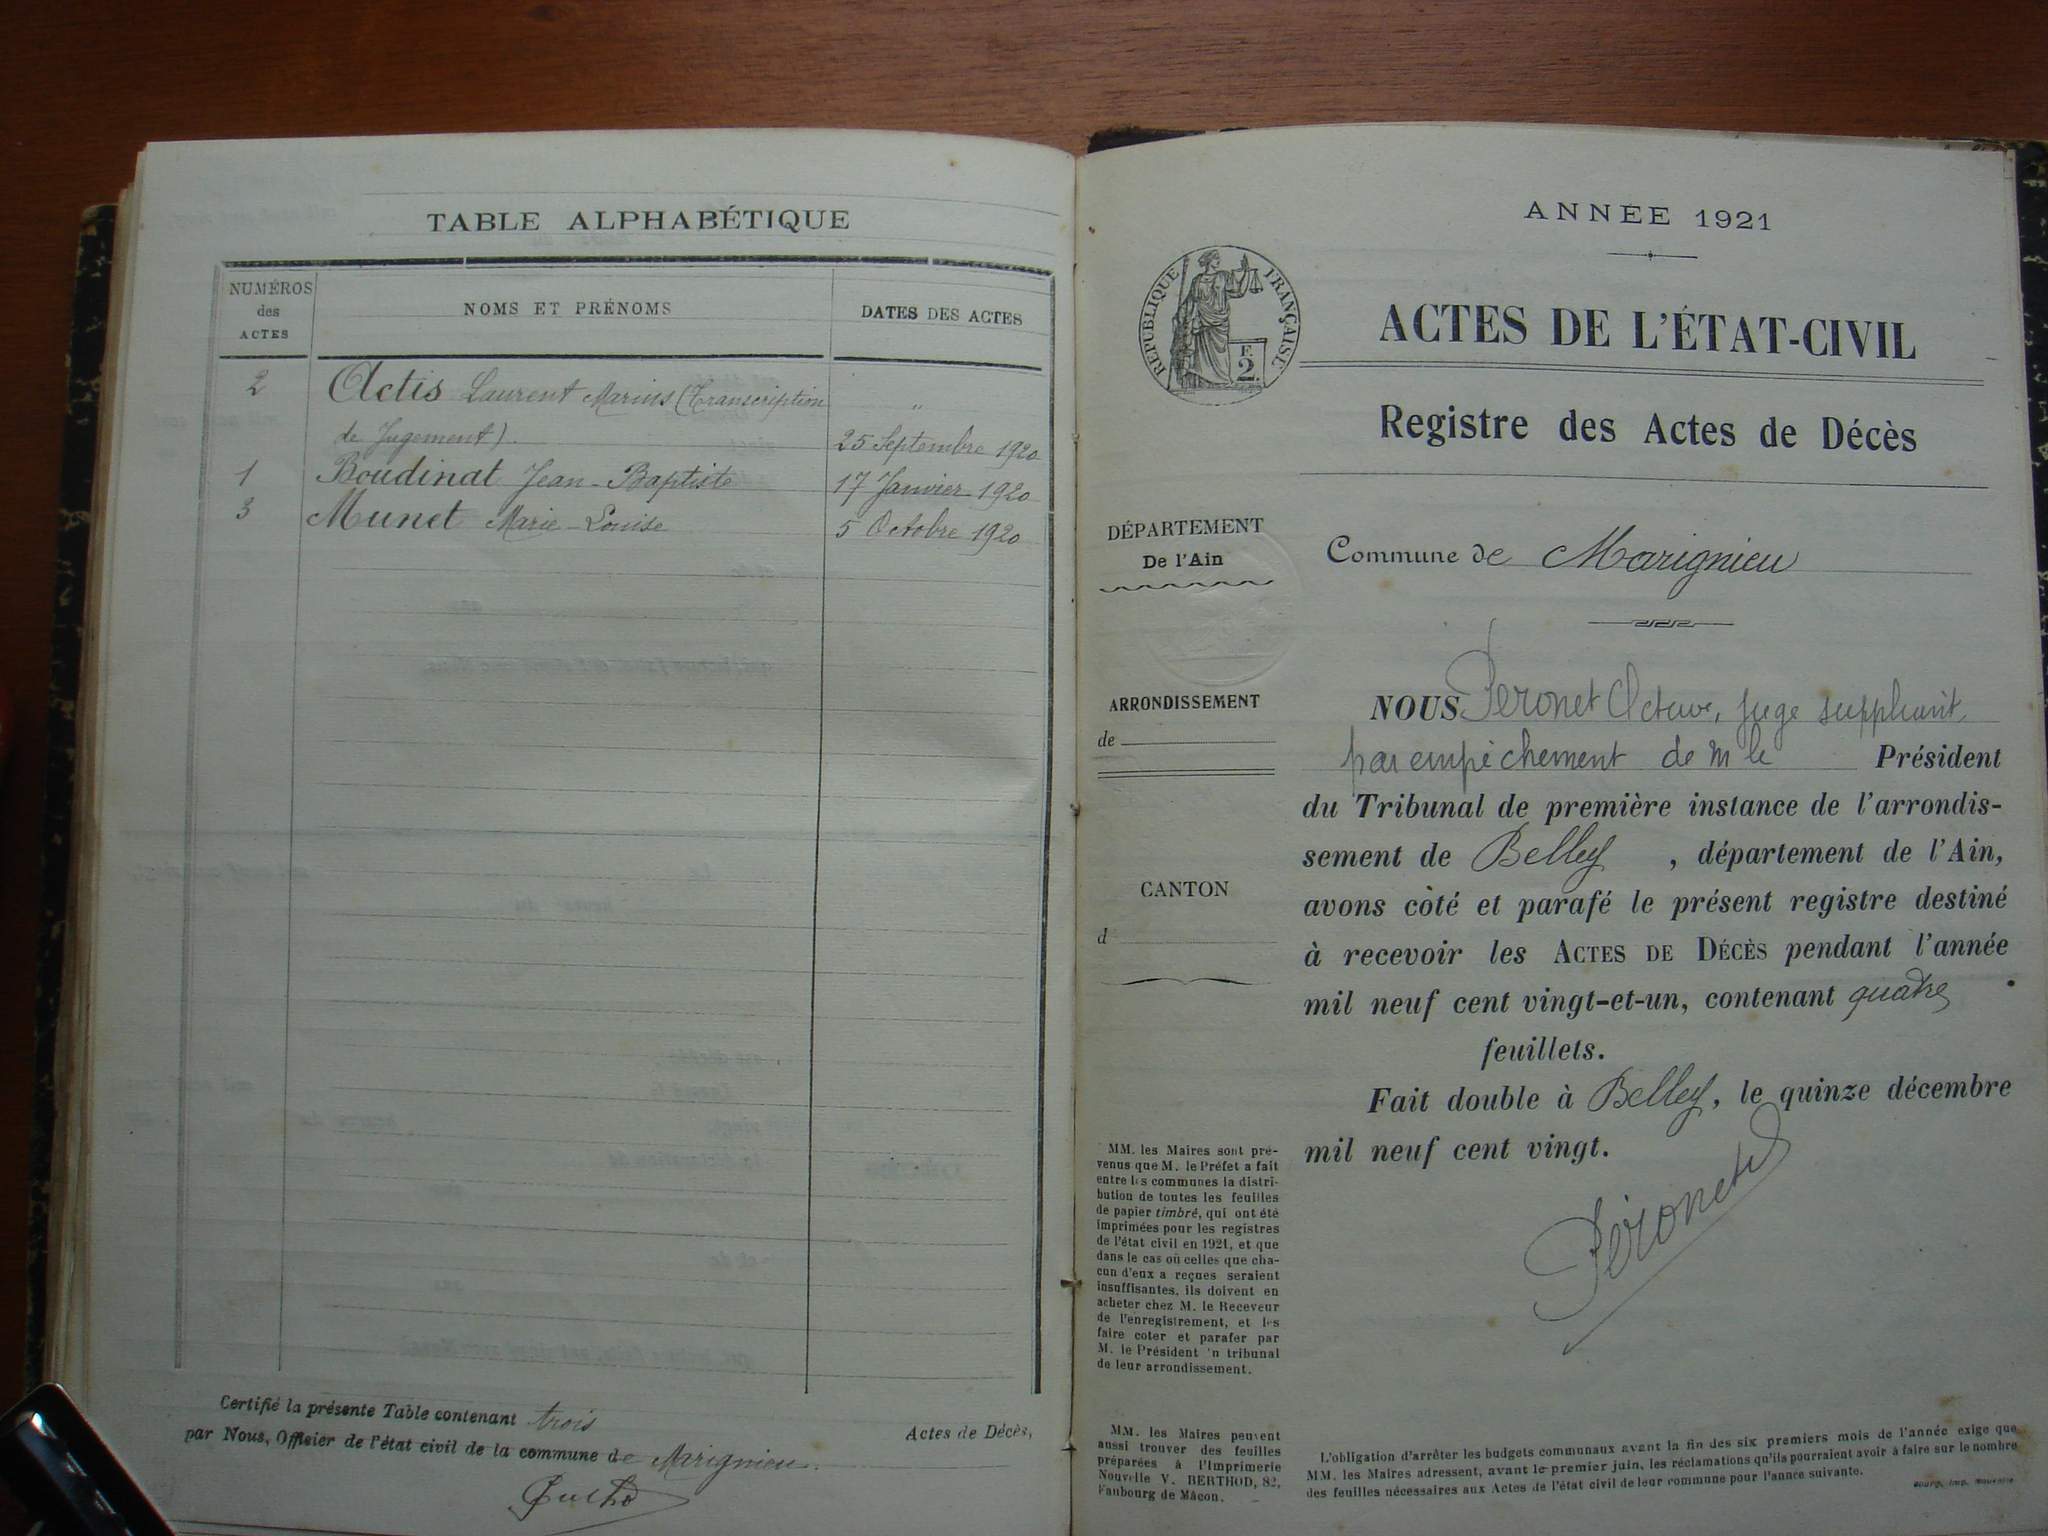 TABLE ALPHABÉTIQUE
NUMÉROS
des
ACTES
NOMS ET PRÉNOMS
DATES DES ACTES
2 Actis Laurent Marius (Transcription "
de Jugement). 25 Septembre 1920
1 Boudinat Jean-Baptiste 17 Janvier 1920
3 Munet Marie-Louise 5 Octobre 1920
Certifié la présente Table contenant trois Actes de Décès,
par Nous, Officier de l'état civil de la commune de Marignieu.
ANNÉE 1921
RÉPUBLIQUE FRANÇAISE
F.
2.
ACTES DE L'ÉTAT-CIVIL
Registre des Actes de Décès
DÉPARTEMENT
De l'Ain
Commune de Marignieu
ARRONDISSEMENT
de
CANTON
d
NOUS Peronet Octave, juge suppléant
par empêchement de M le Président
du Tribunal de première instance de l'arrondis-
sement de Belley, département de l'Ain,
avons côté et parafé le présent registre destiné
à recevoir les ACTES DE DÉCÈS pendant l'année
mil neuf cent vingt-et-un, contenant quatre
feuillets.
Fait double à Belley, le quinze décembre
mil neuf cent vingt.
Péronet
MM. les Maires sont pré-
venus que M. le Préfet a fait
entre les communes la distri-
bution de toutes les feuilles
de papier timbré, qui ont été
imprimées pour les registres
de l'état civil en 1921, et que
dans le cas où celles que cha-
cun d'eux a reçues seraient
insuffisantes, ils doivent en
acheter chez M. le Receveur
de l'enregistrement, et les
faire coter et parafer par
M. le Président 'n tribunal
de leur arrondissement.
MM. les Maires peuvent
aussi trouver des feuilles
préparées à l'Imprimerie
Nouvelle V. BERTHOD, 82,
Faubourg de Mâcon.
L'obligation d'arrêter les budgets communaux avant la fin des six premiers mois de l'année exige que
MM. les Maires adressent, avant le premier juin, les réclamations qu'ils pourraient avoir à faire sur le nombre
des feuilles nécessaires aux Actes de l'état civil de leur commune pour l'année suivante.
Bourg, Imp. Nouvelle